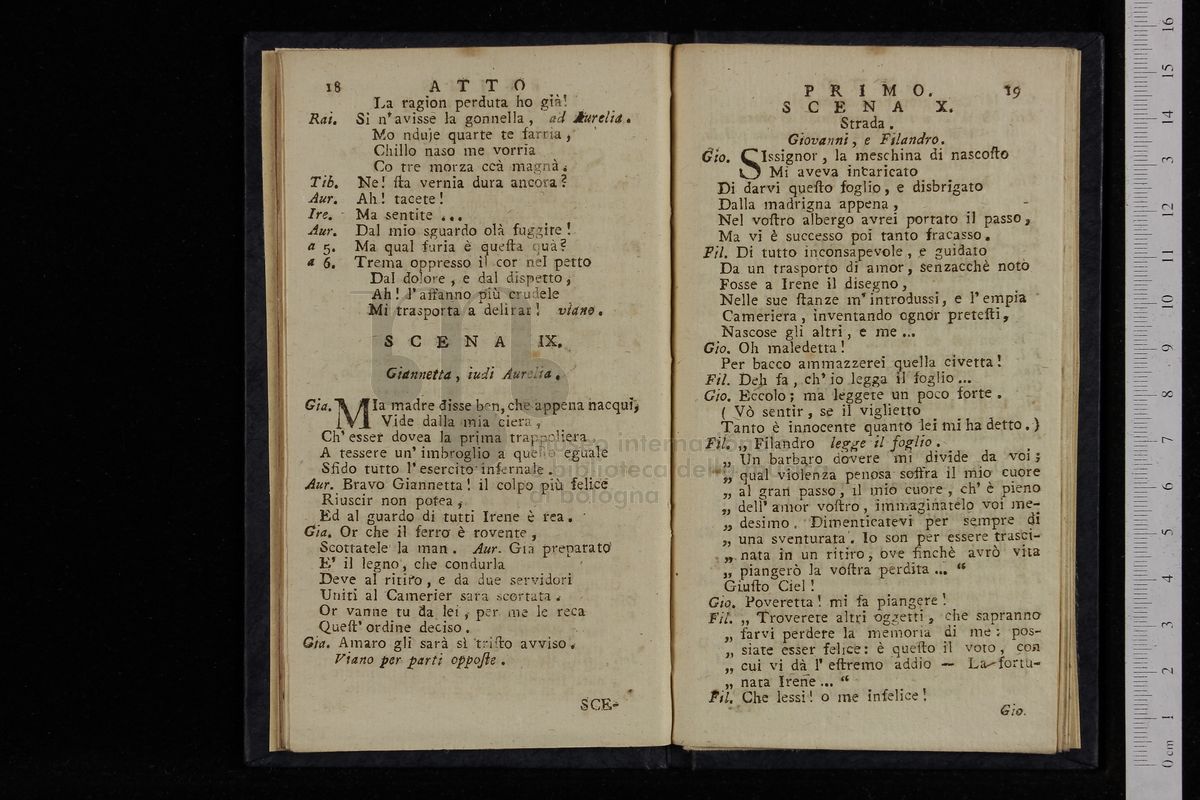 18 ATTO
La ragion perduta ho già!
Rai. Si n'avisse la gonnella, ad Aurelia.
Mo nduje quarte te farria,
Chillo naso me vorria
Co tre morza ccà magnà.
Tib. Ne! sta vernia dura ancora?
Aur. Ah! tacete!
Ire. Ma sentite ...
Aur. Dal mio sguardo olà fuggite!
a 5. Ma qual furia è questa quà?
a 6. Trema oppresso il cor nel petto
Dal dolore, e dal dispetto,
Ah! l'affanno più crudele
Mi trasporta a delirar! viano.
SCENA IX.
Giannetta, iudi Aurelia.
Gia. MIa madre disse ben, che appena nacqui,
Vide dalla mia ciera,
Ch'esser dovea la prima trappoliera,
A tessere un'imbroglio a quello eguale
Sfido tutto l'esercito infernale.
Aur. Bravo Giannetta! il colpo più felice
Riuscir non potea,
Ed al guardo di tutti Irene è rea.
Gia. Or che il ferro è rovente,
Scottatele la man. Aur. Gia preparato
E' il legno, che condurla
Deve al ritiro, e da due servidori
Uniti al Camerier sara scortata.
Or vanne tu da lei, per me le reca
Quest'ordine deciso.
Gia. Amaro gli sarà sì tristo avviso.
Viano per parti opposte.
SCE-
PRIMO. 19
SCENA X.
Strada.
Giovanni, e Filandro.
Gio. SIssignor, la meschina di nascosto
Mi aveva incaricato
Di darvi questo foglio, e disbrigato
Dalla madrigna appena,
Nel vostro albergo avrei portato il passo,
Ma vi è successo poi tanto fracasso.
Fil. Di tutto inconsapevole, e guidato
Da un trasporto di amor, senzacchè noto
Fosse a Irene il disegno,
Nelle sue stanze m'introdussi, e l'empia
Cameriera, inventando ognor pretesti,
Nascose gli altri, e me ...
Gio. Oh maledetta!
Per bacco ammazzerei quella civetta!
Fil. Deh fa, ch'io legga il foglio ...
Gio. Eccolo; ma leggete un poco forte.
( Vò sentir, se il viglietto
Tanto è innocente quanto lei mi ha detto. )
Fil. „ Filandro legge il foglio.
„ Un barbaro dovere mi divide da voi;
„ qual violenza penosa soffra il mio cuore
„ al gran passo, il mio cuore, ch'è pieno
„ dell'amor vostro, immaginatelo voi me-
„ desimo. Dimenticatevi per sempre di
„ una sventurata. Io son per essere trasci-
„ nata in un ritiro, ove finchè avrò vita
„ piangerò la vostra perdita ... “
Giusto Ciel!
Gio. Poveretta! mi fa piangere!
Fil. „ Troverete altri oggetti, che sapranno
„ farvi perdere la memoria di me: pos-
„ siate esser felice: è questo il voto, con
„ cui vi dà l'estremo addio — La sfortu-
„ nata Irene ... “
Fil. Che lessi! o me infelice!
Gio.
museo internazionale
biblioteca della musica
di bologna
0 cm 1 2 3 4 5 6 7 8 9 10 11 12 13 14 15 16